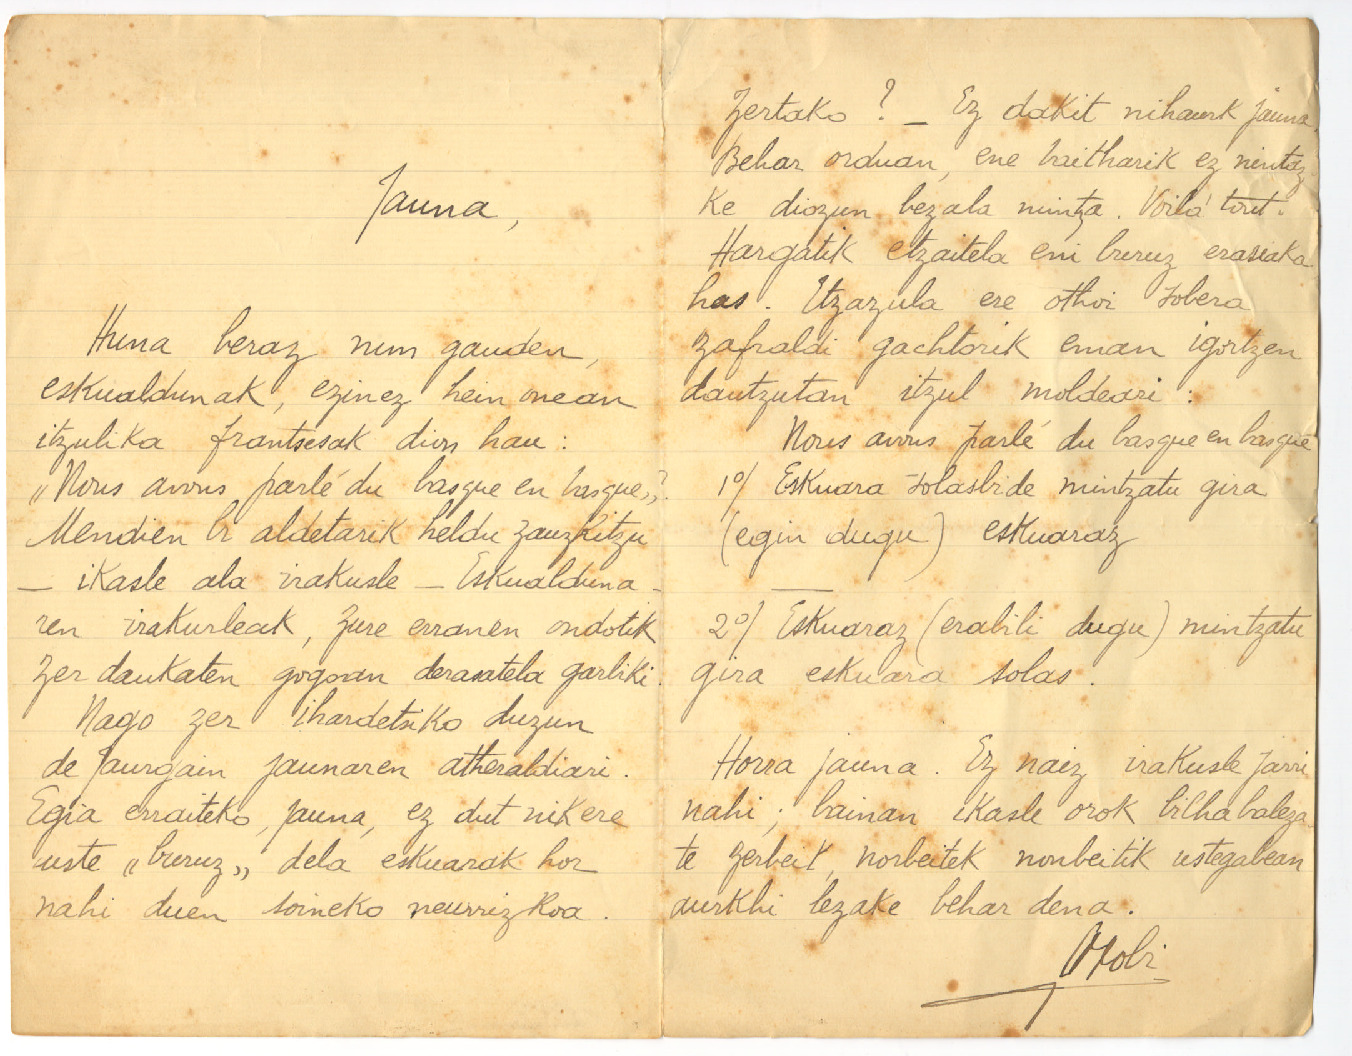 Jauna,
Huna beraz nun gauden,
eskualdunak, ezinez hein onean
itzulika frantsesak dion hau:
"Nous avons parlé du basque en basque"?
Mendien bi aldetarik heldu zauzkitzu
— ikasle ala irakusle — Eskualduna-
ren irakurleak, zure erranen ondotik
zer daukaten gogoan derasatela garbiki.
Nago zer ihardetsiko duzun
de Jaurgain jaunaren atheraldiari.
Egia erraiteko, jauna, ez dut nik ere
uste "buruz" dela eskuarak hor
nahi duen soineko neurrizkoa.
Zertako? — Ez dakit nihaurk jauna.
Behar orduan, ene baitharik ez nintaz
ke diozun bezala mintza. Voilà tout.
Hargatik etzaitela eni buruz erasiaka
has. Etzazula ere othoi sobera
zafraldi gachtorik eman igortzen
dautzutan itzul moldeari:
Nous avons parlé du basque en basque
1º/ Eskuara solasbide mintzatu gira
(egin dugu) eskuaraz
2º/ Eskuaraz (erabili dugu) mintzatu
gira eskuara solas.
Horra jauna. Ez naiz irakusle jarri
nahi; bainan ikasle orok bilha baleza
te zerbeit, norbeitek nonbeitik ustegabean
aurkhi lezake behar dena.